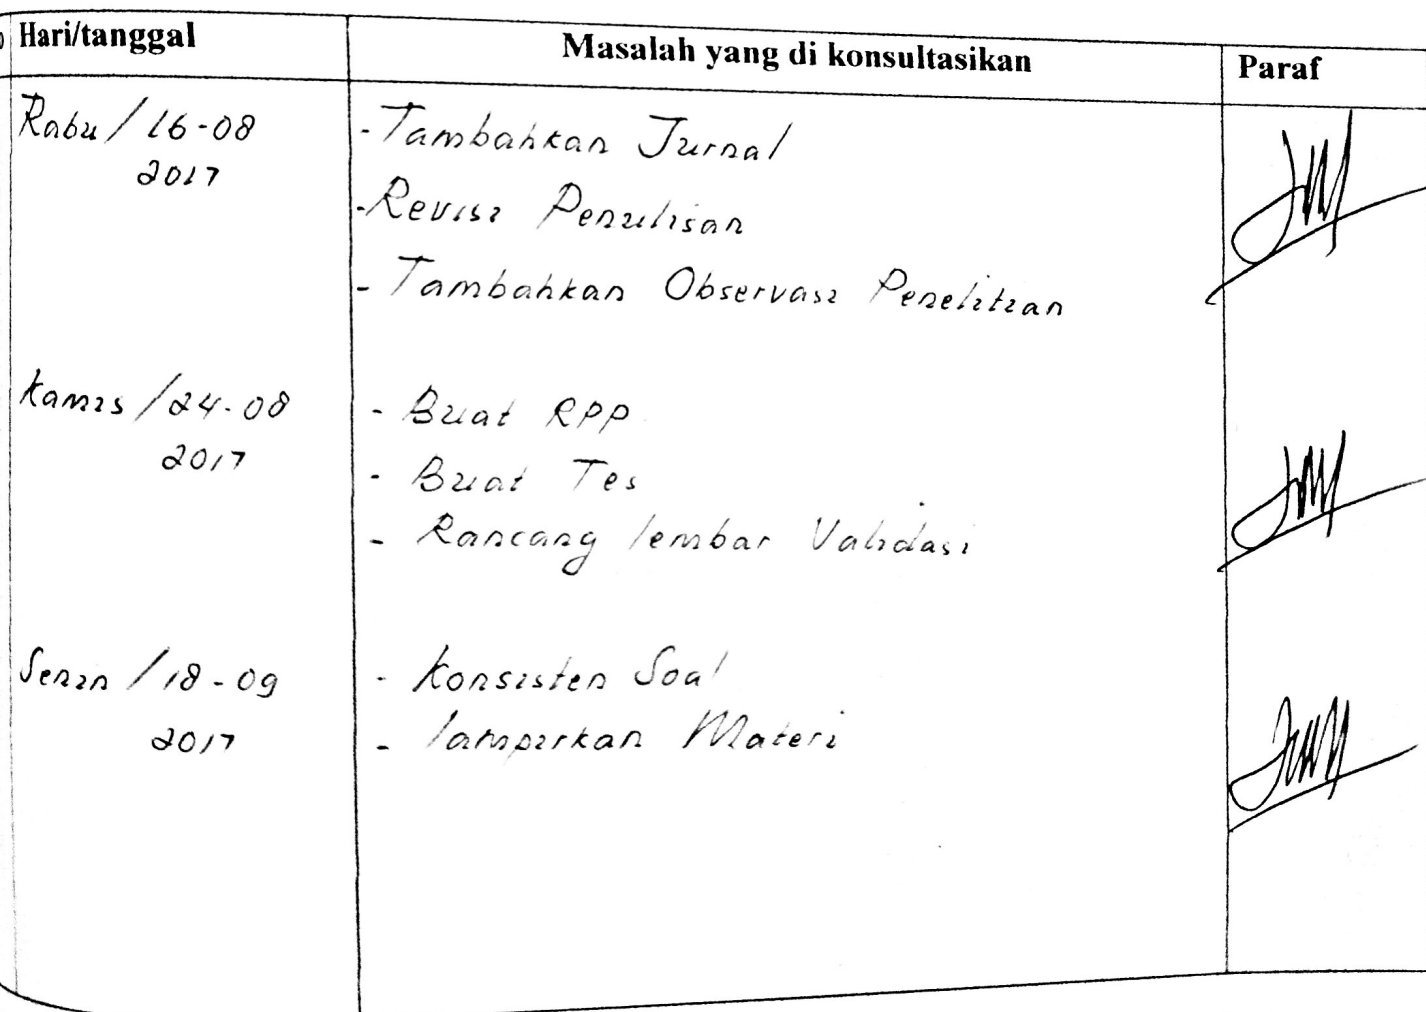 Hari/tanggal Masalah yang di konsultasikan Paraf
Rabu / 16-08 - Tambahkan Jurnal
2017
- Revisi Penulisan
- Tambahkan Observasi Penelitian
Kamis / 24-08 - Buat RPP
2017
- Buat Tes
- Rancang lembar Validasi
Senin / 18-09 - Konsisten Soal
2017 - lampirkan Materi